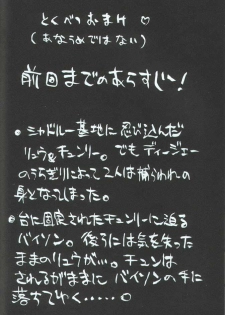 とくべつおまけ♡
(あなうめではない)
前回までのあらすじ〜!
●シャドルー基地に忍び込んだ
リュウ&チュンリー。でもディージェー
のうらぎりによって2人は捕らわれの
身となってしまった。
●台に固定されたチュンリーに迫る
バイソン。後ろには気を失った
ままのリュウが…。チュンは
されるがままにバイソンの手に
落ちてゆく……。○